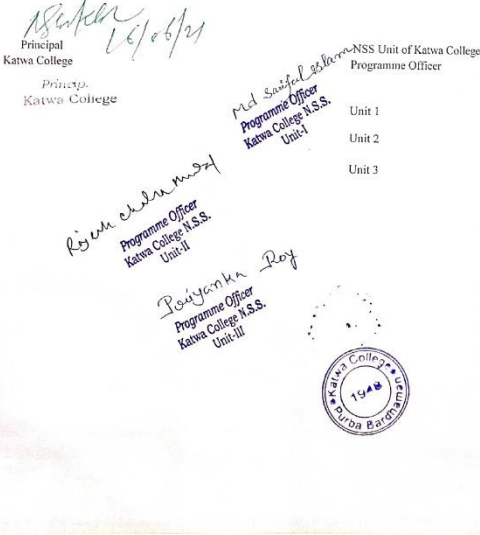 16/06/21
Principal
Katwa College
Princip.
Katwa College
NSS Unit of Katwa College
Programme Officer
Unit 1
Unit 2
Unit 3
Md Sariful Islam
Programme Officer
Katwa College N.S.S.
Unit-I
Programme Officer
Katwa College N.S.S.
Unit-II
Priyanka Roy
Programme Officer
Katwa College N.S.S.
Unit-III
Katwa College
1948
Purba Bardhaman